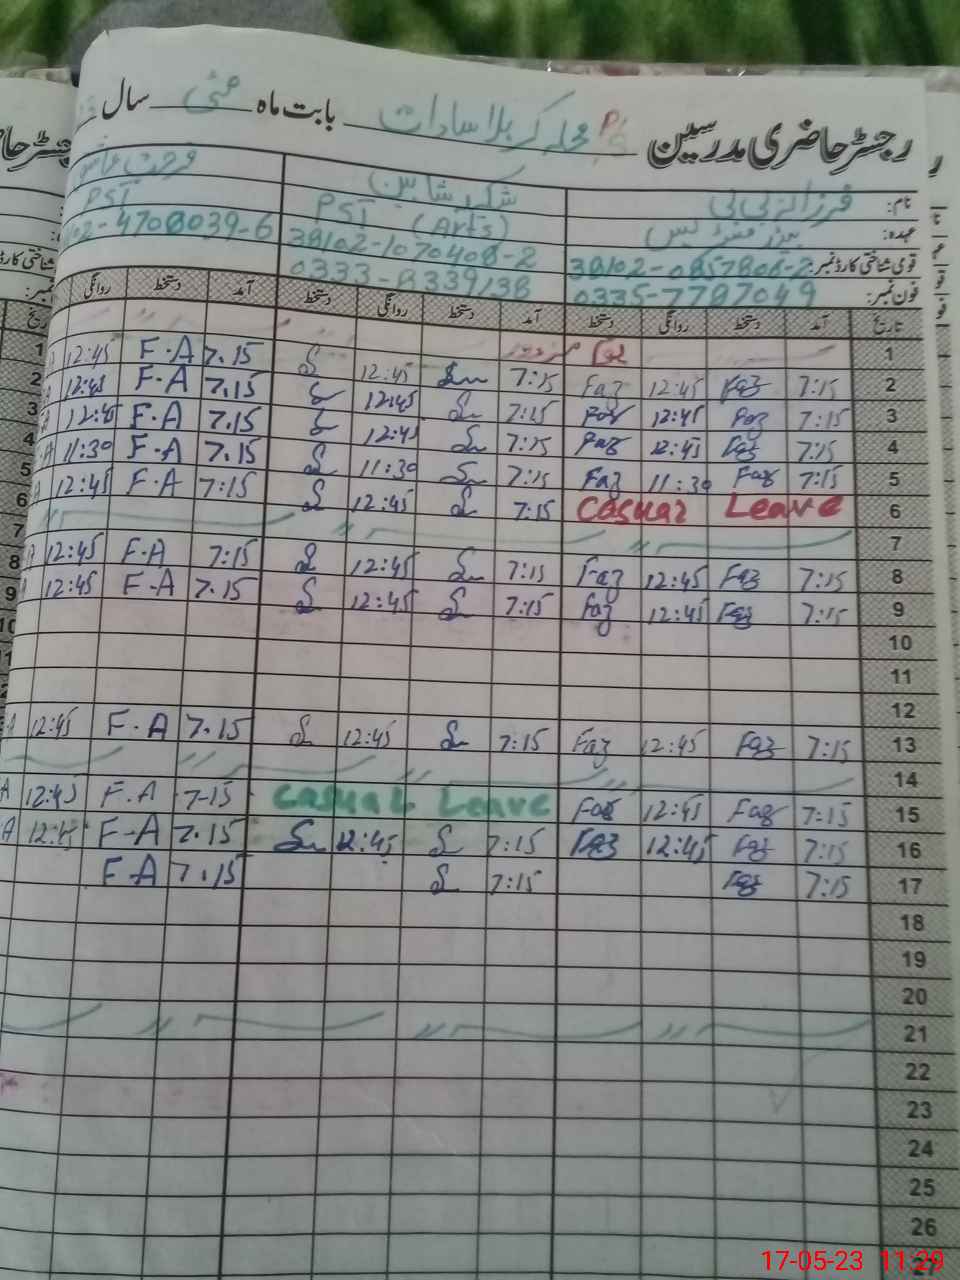 رجسٹر حاضری مدرسین محلہ کربلا سادات بابت ماہ مئی سال
نام: فرزانہ بی بی شکر شاہین فرحت
عہدہ: ہیڈ مسٹریس PST (Arts) PST
قومی شناختی کارڈ نمبر: 38102-0857806-2 38102-1070408-2 102-4708039-6
فون نمبر: 0335-7787049 0333-8339138
تاریخ آمد دستخط روانگی دستخط آمد دستخط روانگی دستخط آمد دستخط روانگی
1 یوم مزدور
2 7:15 Faz 12:45 Faz 7:15 S 12:45 S 7.15 F.A 12:45
3 7:15 Faz 12:45 Faz 7:15 S 12:45 S 7.15 F.A 12:45
4 7:15 Faz 12:45 Faz 7:15 S 12:45 S 7.15 F.A 12:45
5 7:15 Faz 11:30 Faz 7:15 S 11:30 S 7.15 F.A 11:30
6 Casual Leave 7:15 S 12:45 S 7:15 F.A 12:45
7
8 7:15 Faz 12:45 Faz 7:15 S 12:45 S 7:15 F.A 12:45
9 7:15 Faz 12:45 Faz 7:15 S 12:45 S 7.15 F-A 12:45
10
11
12
13 7:15 Faz 12:45 Faz 7:15 S 12:45 S 7.15 F.A 12:45
14
15 7:15 Faz 12:45 Faz Casual Leave 7-15 F.A 12:45
16 7:15 Faz 12:45 Faz 7:15 S 12:45 S 7.15 F-A 12:45
17 7:15 Faz 7:15 S 7.15 F.A
18
19
20
21
22
23
24
25
26
27
17-05-23 11:29